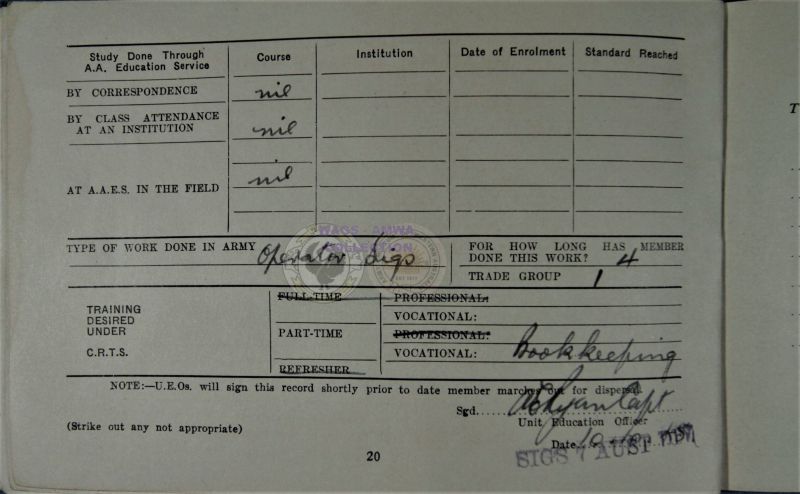 Study Done Through A.A. Education Service Course Institution Date of Enrolment Standard Reached
BY CORRESPONDENCE nil
BY CLASS ATTENDANCE AT AN INSTITUTION nil
AT A.A.E.S. IN THE FIELD nil
WAGS - AMWA COLLECTION
TYPE OF WORK DONE IN ARMY Operator Sigs
FOR HOW LONG HAS MEMBER DONE THIS WORK? 4
TRADE GROUP 1
TRAINING DESIRED UNDER C.R.T.S.
FULL-TIME PROFESSIONAL:
VOCATIONAL:
PART-TIME PROFESSIONAL:
VOCATIONAL: Bookkeeping
REFRESHER
NOTE:—U.E.Os. will sign this record shortly prior to date member marches out for dispersal.
Sgd. Capt
Unit Education Officer
(Strike out any not appropriate)
Date
SIGS 7 AUST DIV
20
T